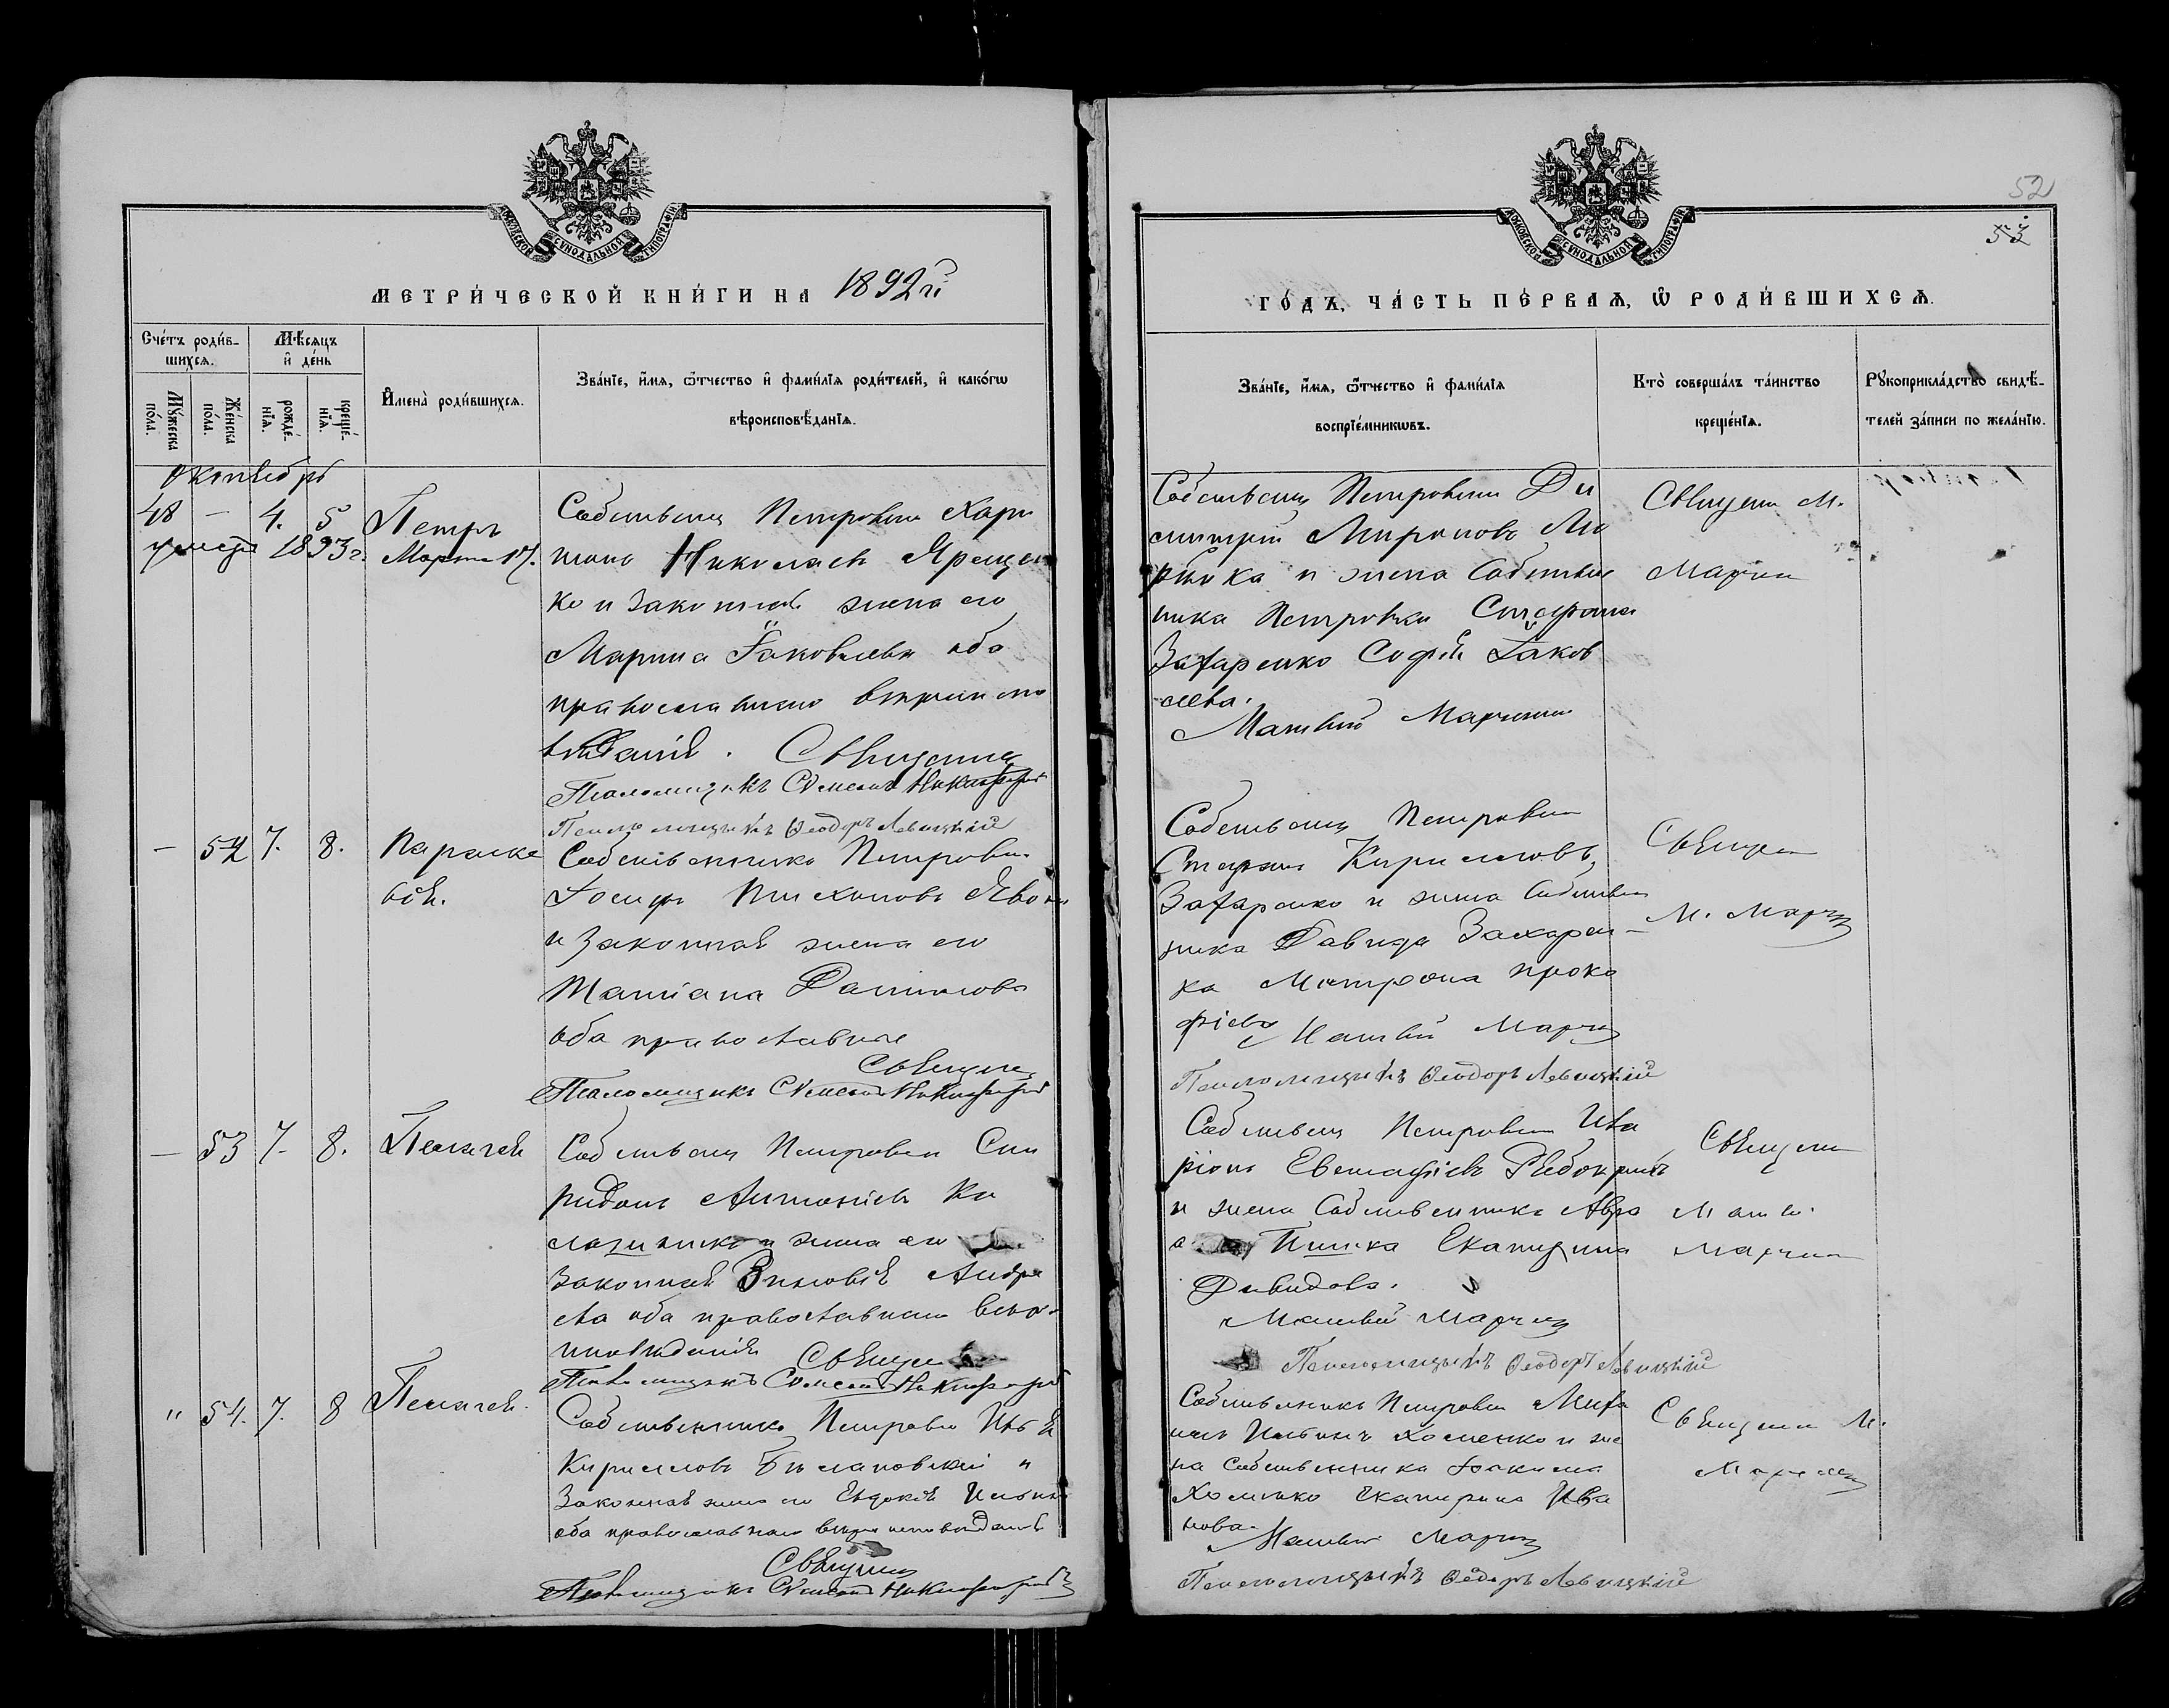 МЕТРИ́ЧЕСКОЙ КНИ́ГИ НА 1892 г.
Сче́тъ роди́в-
шихся.
Мѣ́сяцъ
и҆ де́нь
Мꙋ́жеска
по́ла.
Же́нска
по́ла.
рожде́-
нїѧ.
креще́-
нїѧ.
И҆мена̀ роди́вшихсѧ.
Зва́нїе, и҆́мѧ, ѻ҆́тчество и҆ фами́лїѧ роди́телей, и҆ како́гѡ
вѣроисповѣ́данїѧ.
октябрь
48 — 4. 5 Петръ
умеръ 1893 г. Марта 17.
Собственн Петровки Хари
тонъ Николаевъ Ярещен
ко и законная жена его
Марина Іаковлева оба
православнаго вѣроиспо
вѣданія. Священникъ
Псаломщикъ Симеонъ Никифоровъ
Псаломщикъ Ѳеодоръ Левицкій
— 52 7. 8. Параске
вія.
Собственникъ Петровки
Іосифъ Тихоновъ
и законная жена его
Татіана Даніилова
оба православные
Священ
Псаломщикъ Симеонъ Никифоровъ
— 53 7. 8. Пелагея
Собственн Петровки Спи
ридонъ Антоніевъ Ка
и жена его
законная Зиновія Андре
ева оба православнаго вѣро
исповѣданія Священ
Псаломщикъ Симеонъ Никифоровъ
" 54. 7. 8 Пелагея.
Собственникъ Петровки
Кирилловъ Билановскій и
законная жена его Евдокія Ильина
оба православнаго вѣроисповѣданія
Священн
Псаломщикъ Симеонъ Никифоровъ
52
53
ГО́ДЪ, ЧА́СТЬ ПЕ́РВАѦ, Ѽ РОДИ́ВШИХСѦ.
Зва́нїе, и҆́мѧ, ѻ҆́тчество и҆ фами́лїѧ
воспрїе́мникѡвъ.
Кто̀ соверша́лъ та́инство
креще́нїѧ.
Рꙋкоприкла́дство свидѣ́-
телей за́писи по жела́нїю.
Собственн Петровки Ди
митрій Мироновъ
и жена Собствен
ника Петровки Стефана
Захаренко Софія Іаков
лева.
Матвій Марчин
Священн М.
Марчин
Собственн Петровки
Стефанъ Кирилловъ
Захаренко и жена Собствен
ника Давида Захарен-
ка Матрона Проко
фіева Матвій Марчин
Псаломщикъ Ѳеодоръ Левицкій
Священ
М. Марчин
Собственн Петровки Ила
ріонъ Евстафіевъ
и жена Собственника Авра
Екатерина
Давидова.
Матвій Марчин
Псаломщикъ Ѳеодоръ Левицкій
Священн
Матв.
Марчин
Собственникъ Петровки Миха
илъ Ильинъ Хоменко и же
на Собственника Іоакима
Хоменко Екатерина Ива
нова.
Матвій Марчин
Псаломщикъ Ѳеодоръ Левицкій
Священн М.
Марчин